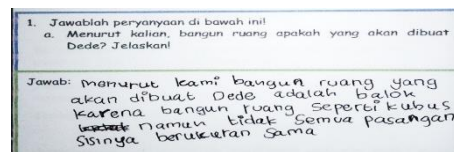 1. Jawablah peryanyaan di bawah ini!
a. Menurut kalian, bangun ruang apakah yang akan dibuat
Dede? Jelaskan!
Jawab: Menurut kami bangun ruang yang
akan dibuat Dede adalah balok
karena bangun ruang seperti kubus
namun tidak semua pasangan
sisinya berukuran sama